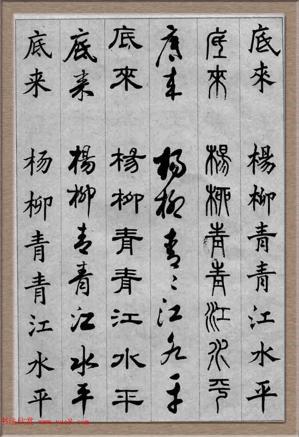 底來 楊柳青青江水平
底來 楊柳青青江水平
底来 杨柳青〻江水平
底來 楊柳青青江水平
底来 楊柳青青江水平
底来 杨柳青青江水平
书法欣赏 www.yac8.com